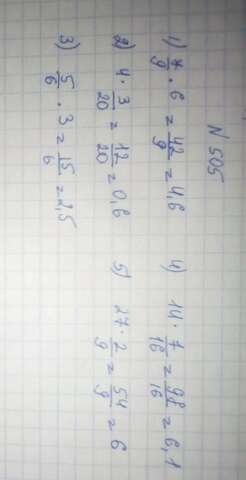 N 505
1) 7/9 · 6 = 42/9 = 4,6
4) 14 · 7/16 = 98/16 = 6,1
2) 4 · 3/20 = 12/20 = 0,6
5) 27 · 2/9 = 54/9 = 6
3) 5/6 · 3 = 15/6 = 2,5